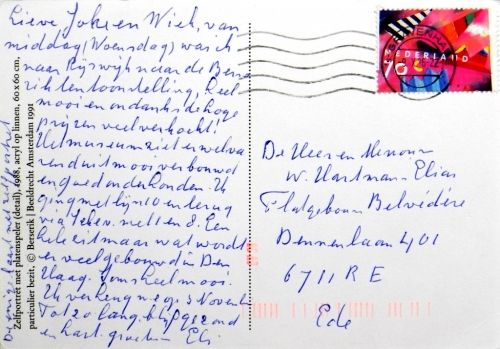 Lieve Joke en Wiek, van
middag (Woensdag) was ik
naar Rijswijk naar de Berse
rik tentoonstelling, heel
mooi en ondanks de hoge
prijzen veel verkocht!
Het museum ziet er wel va
rend uit mooi verbouwd
en goed onderhouden. Ik
ging met lijn 10 en terug
via Schev. net en 8. Een
hele rit maar wat wordt
er veel gebouwd in Den
Haag. Soms heel mooi.
Ik verheug me op 3 Novemb
Tot zo lang. blijf gezond
en hart. groeten Eli
De enige kaart met zelfportret
Zelfportret met platenspeler (detail), 1988, acryl op linnen, 60 x 60 cm,
particulier bezit, © Berserik | Beeldrecht Amsterdam 1991
NEDERLAND
70
De Heer en Mevrouw
W. Hartman-Elias
Flatgebouw Belvédère
Dennenlaan 401
6711 RE
Ede